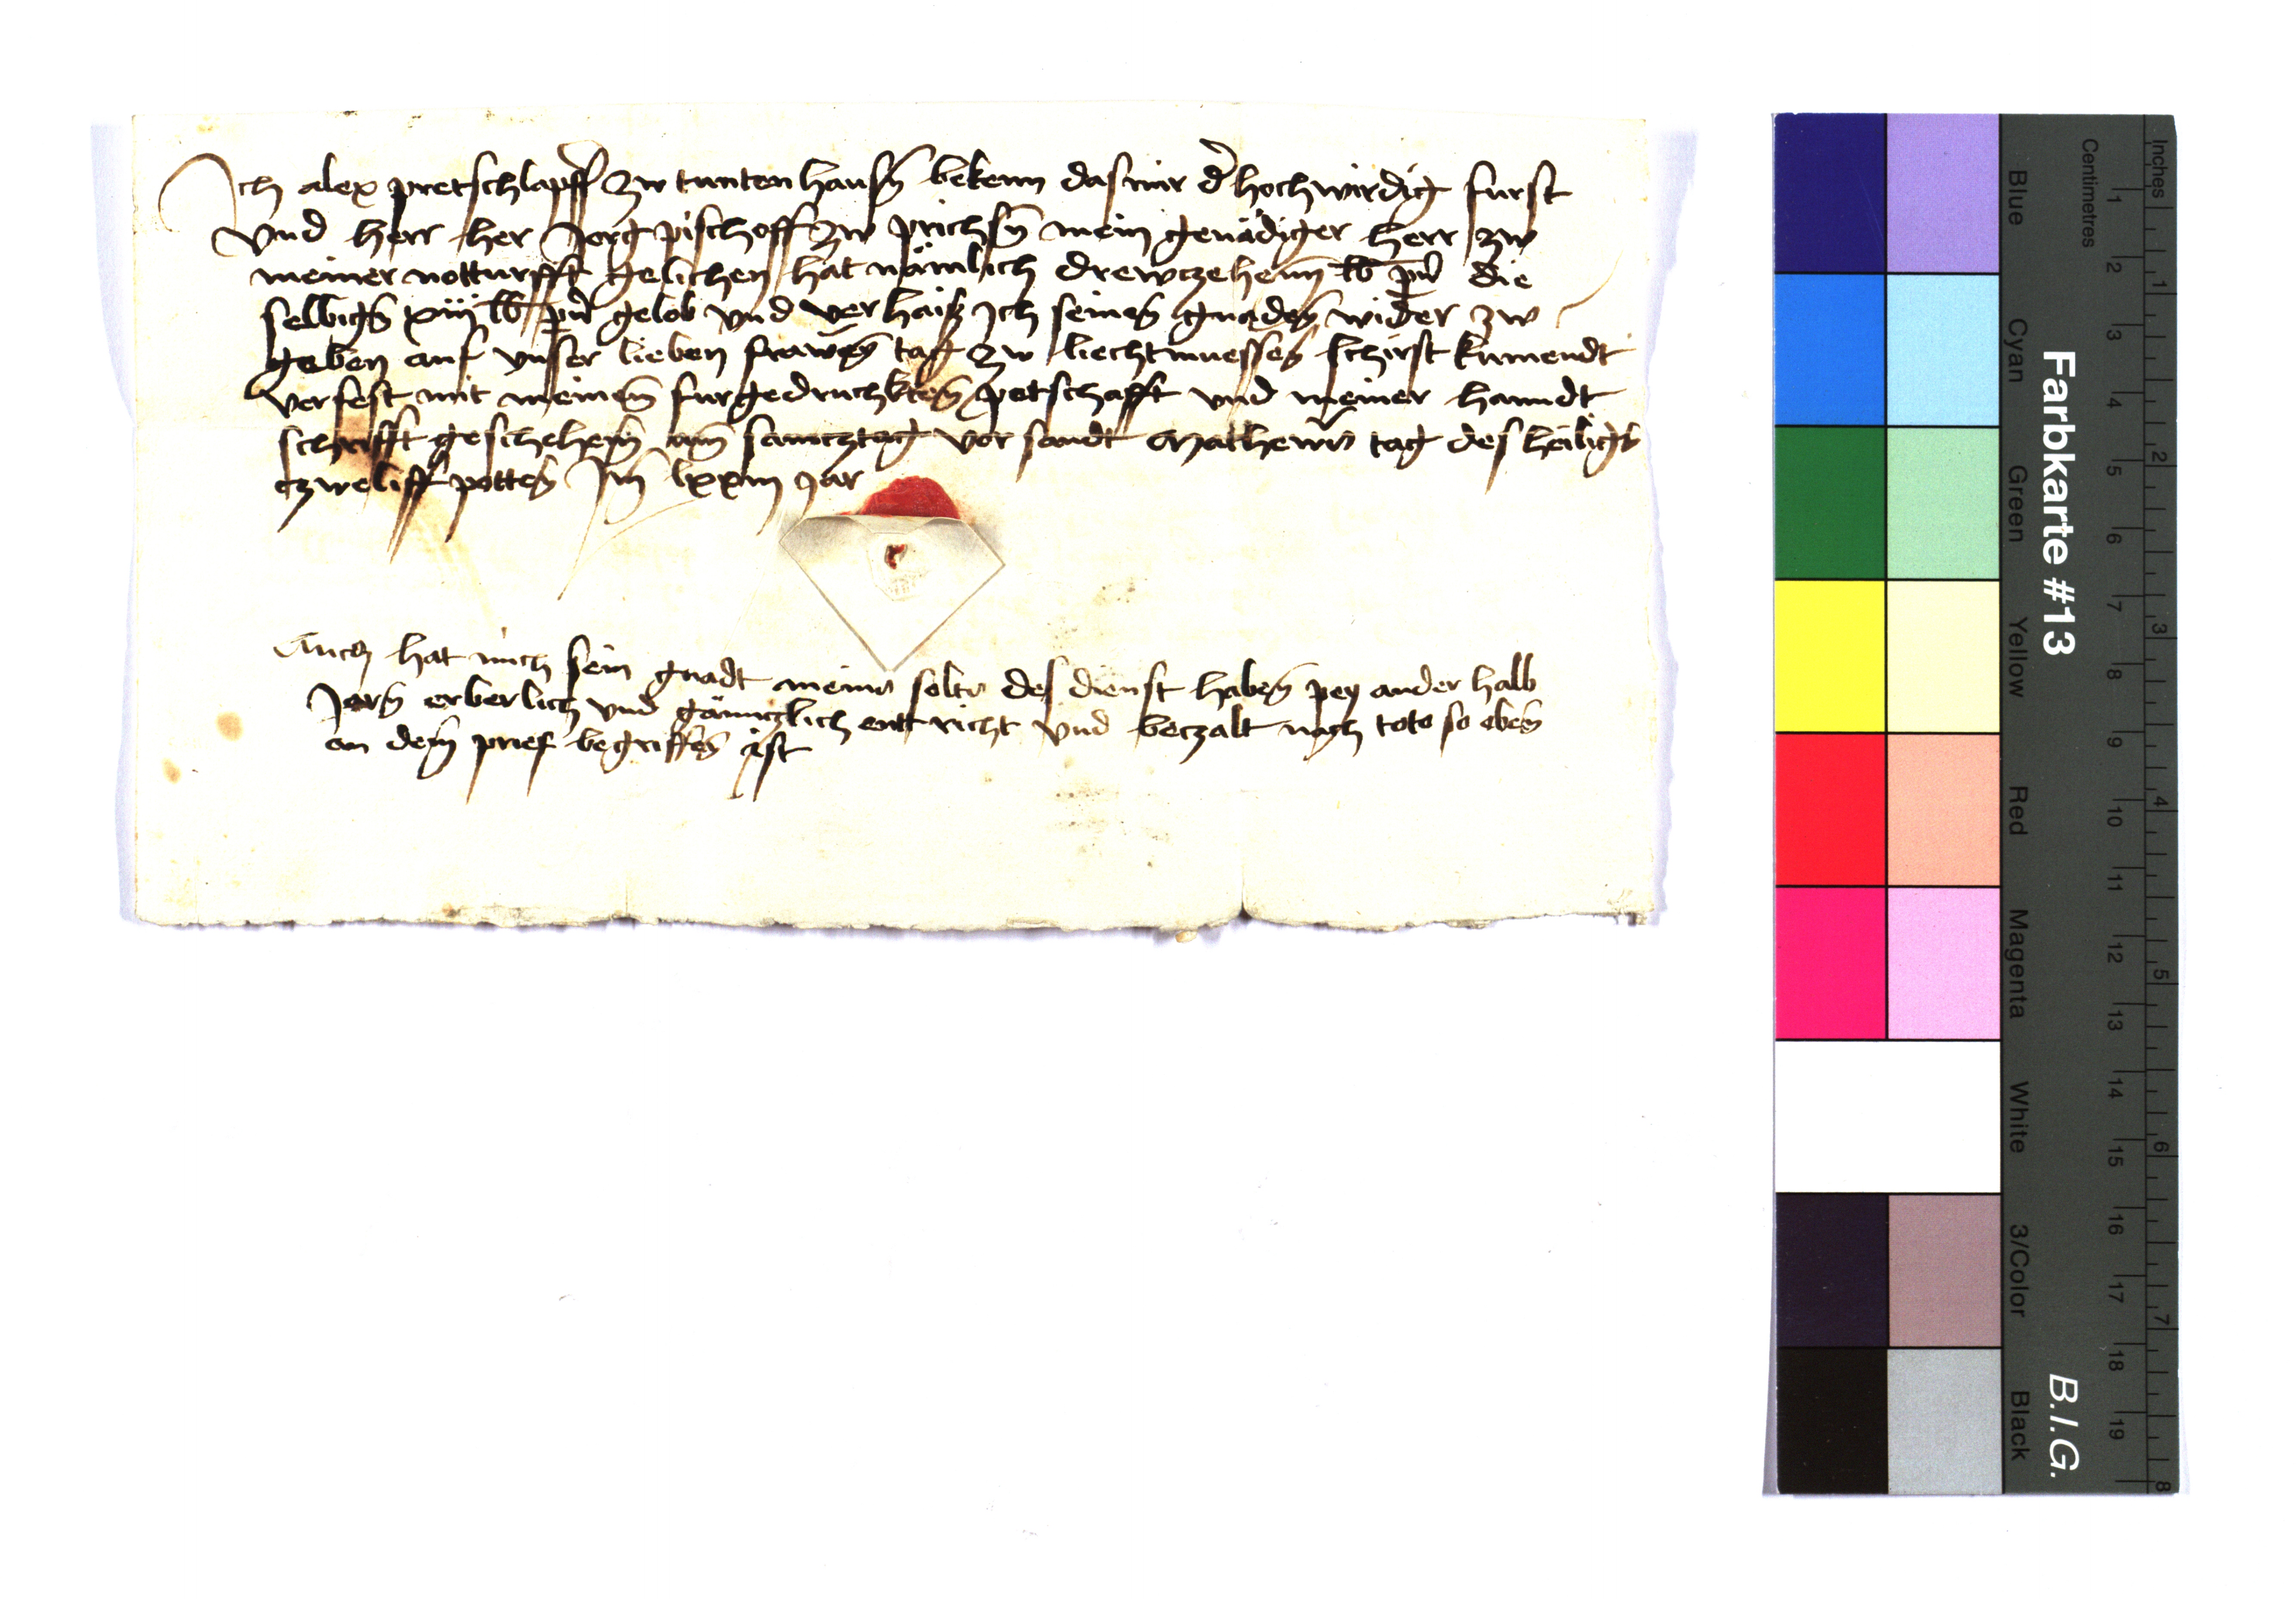 Ich alex pretschlapff zw tuntenhausn̄ bekenn das mir d̄ hochwirdig furst
vnd herr her Jorg pischoff zw prichsn̄ mein genädiger herr zw
meiner notturfft gelichen hat nämlich drewczehenn lb pn̄ die
selbign̄ xiii lb pn̄ gelob vnd verhaiß Ich seinen̄ gnaden̄ wider zw
geben auf vnser lieben frawen̄ tag zw liechtmessen̄ schirst kumendt
verfest mit meinem̄ furgedruchkten̄ petschafft vnd meiner hanndt
schrifft geschehen̄ am̄ samcztag vor sandt Matheus tag des heilign̄
czweliff potten̄ Im̄ lxxiii Jar
Auch hat mich sein gnadt meins solts des dienst haben̄ pey ander halb
Jarn̄ erberlich vnd gännczlich enttricht vnd beczalt nach toto so eben̄
an dem̄ prief begriffen̄ ist
Farbkarte #13
B.I.G.
Inches
Centimetres
Blue
Cyan
Green
Yellow
Red
Magenta
White
3/Color
Black
1 2 3 4 5 6 7 8 9 10 11 12 13 14 15 16 17 18 19
1 2 3 4 5 6 7 8